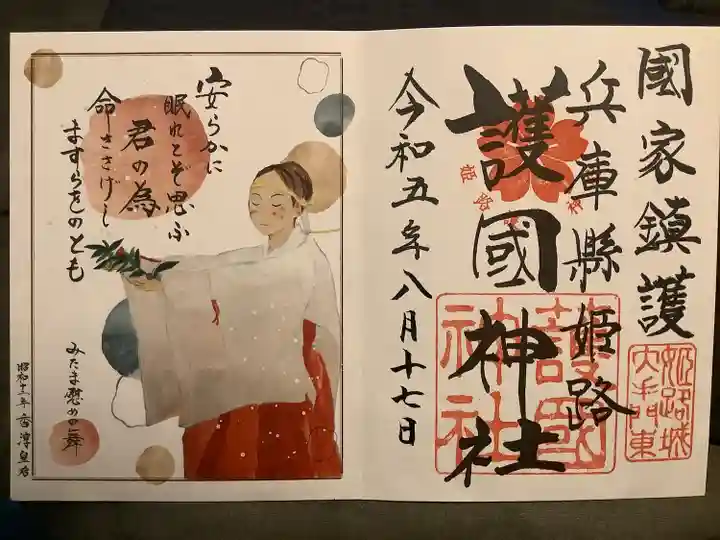 國家鎮護
姫路城
大手門東
兵庫縣姫路
護國神社
護國
神社
令和五年八月十七日
安らかに
眠れとぞ思ふ
君の為
命ささげし
ますらをのとも
みたま慰めの舞
昭和十二年 香淳皇后